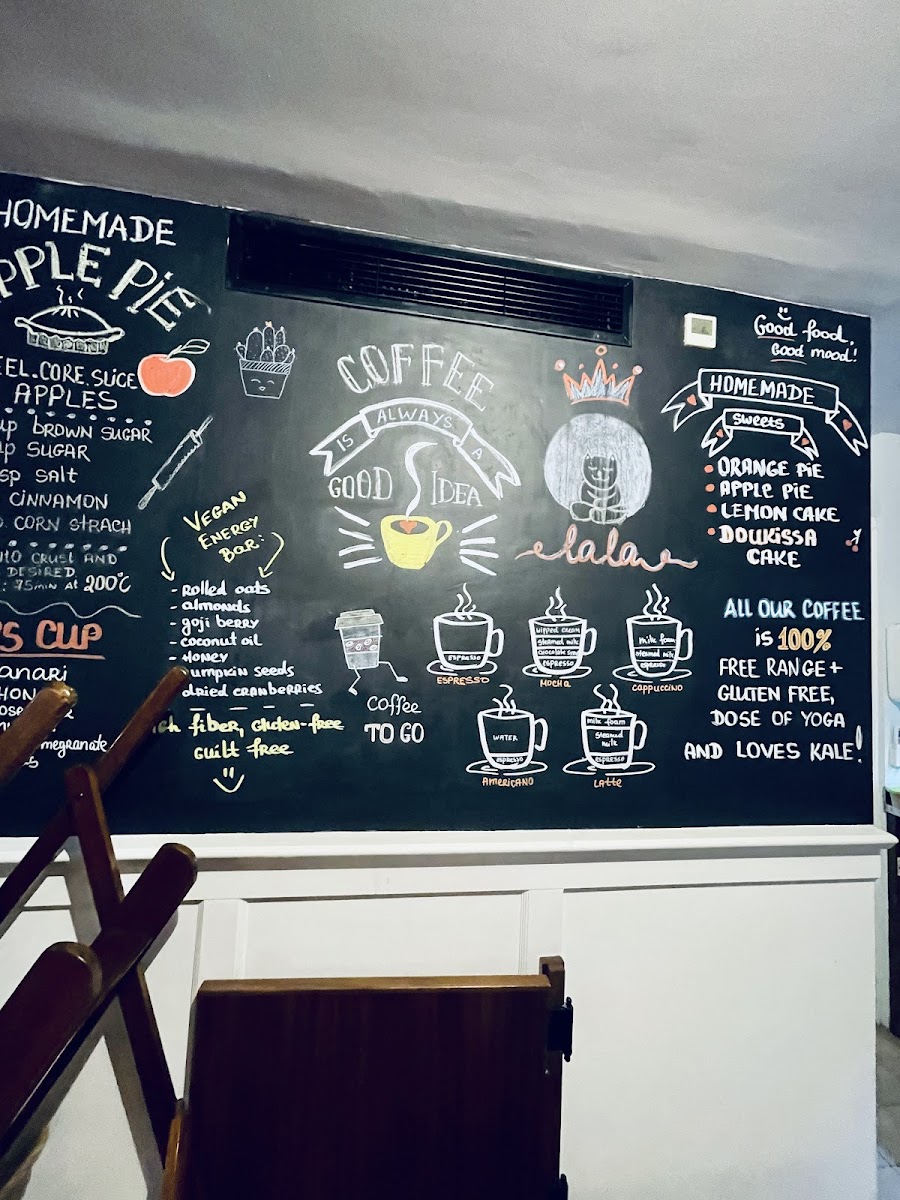 HOMEMADE
PPLE PiE
EEL.CORE.SLICE
APPLES
up BROWN SUGAR
up SUGAR
sp SALT
CINNAMON
CORN STRACH
CRUST AND
DESIRED
: 75min AT 200°C
'S CUP
anari
HON
megranate
VEGAN
ENERGY
BAR:
- Rolled oats
- almonds
- goji berry
- coconut oil
- HONEY
umpkin seeds
dried cranberries
fiber, Gluten-free
Guilt free
COFFEE
IS ALWAYS A
GOOD IDEA
lalaw
Coffee
TO GO
ESPRESSO
ESPRESSO
wipped cream
steamed milk
espresso
MOCHA
milk foam
steamed milk
espresso
CAPPUCCINO
WATER
espresso
AMERICANO
milk foam
Steamed
milk
espresso
Latte
Good food,
Good mood!
HOMEMADE
Sweets
• ORANGE PiE
• APPLE PiE
• LEMON CAKE
• DOUKISSA
CAKE
ALL OUR COFFEE
is 100%
FREE RANGE+
GLUTEN FREE,
DOSE OF YOGA
AND LOVES KALE!